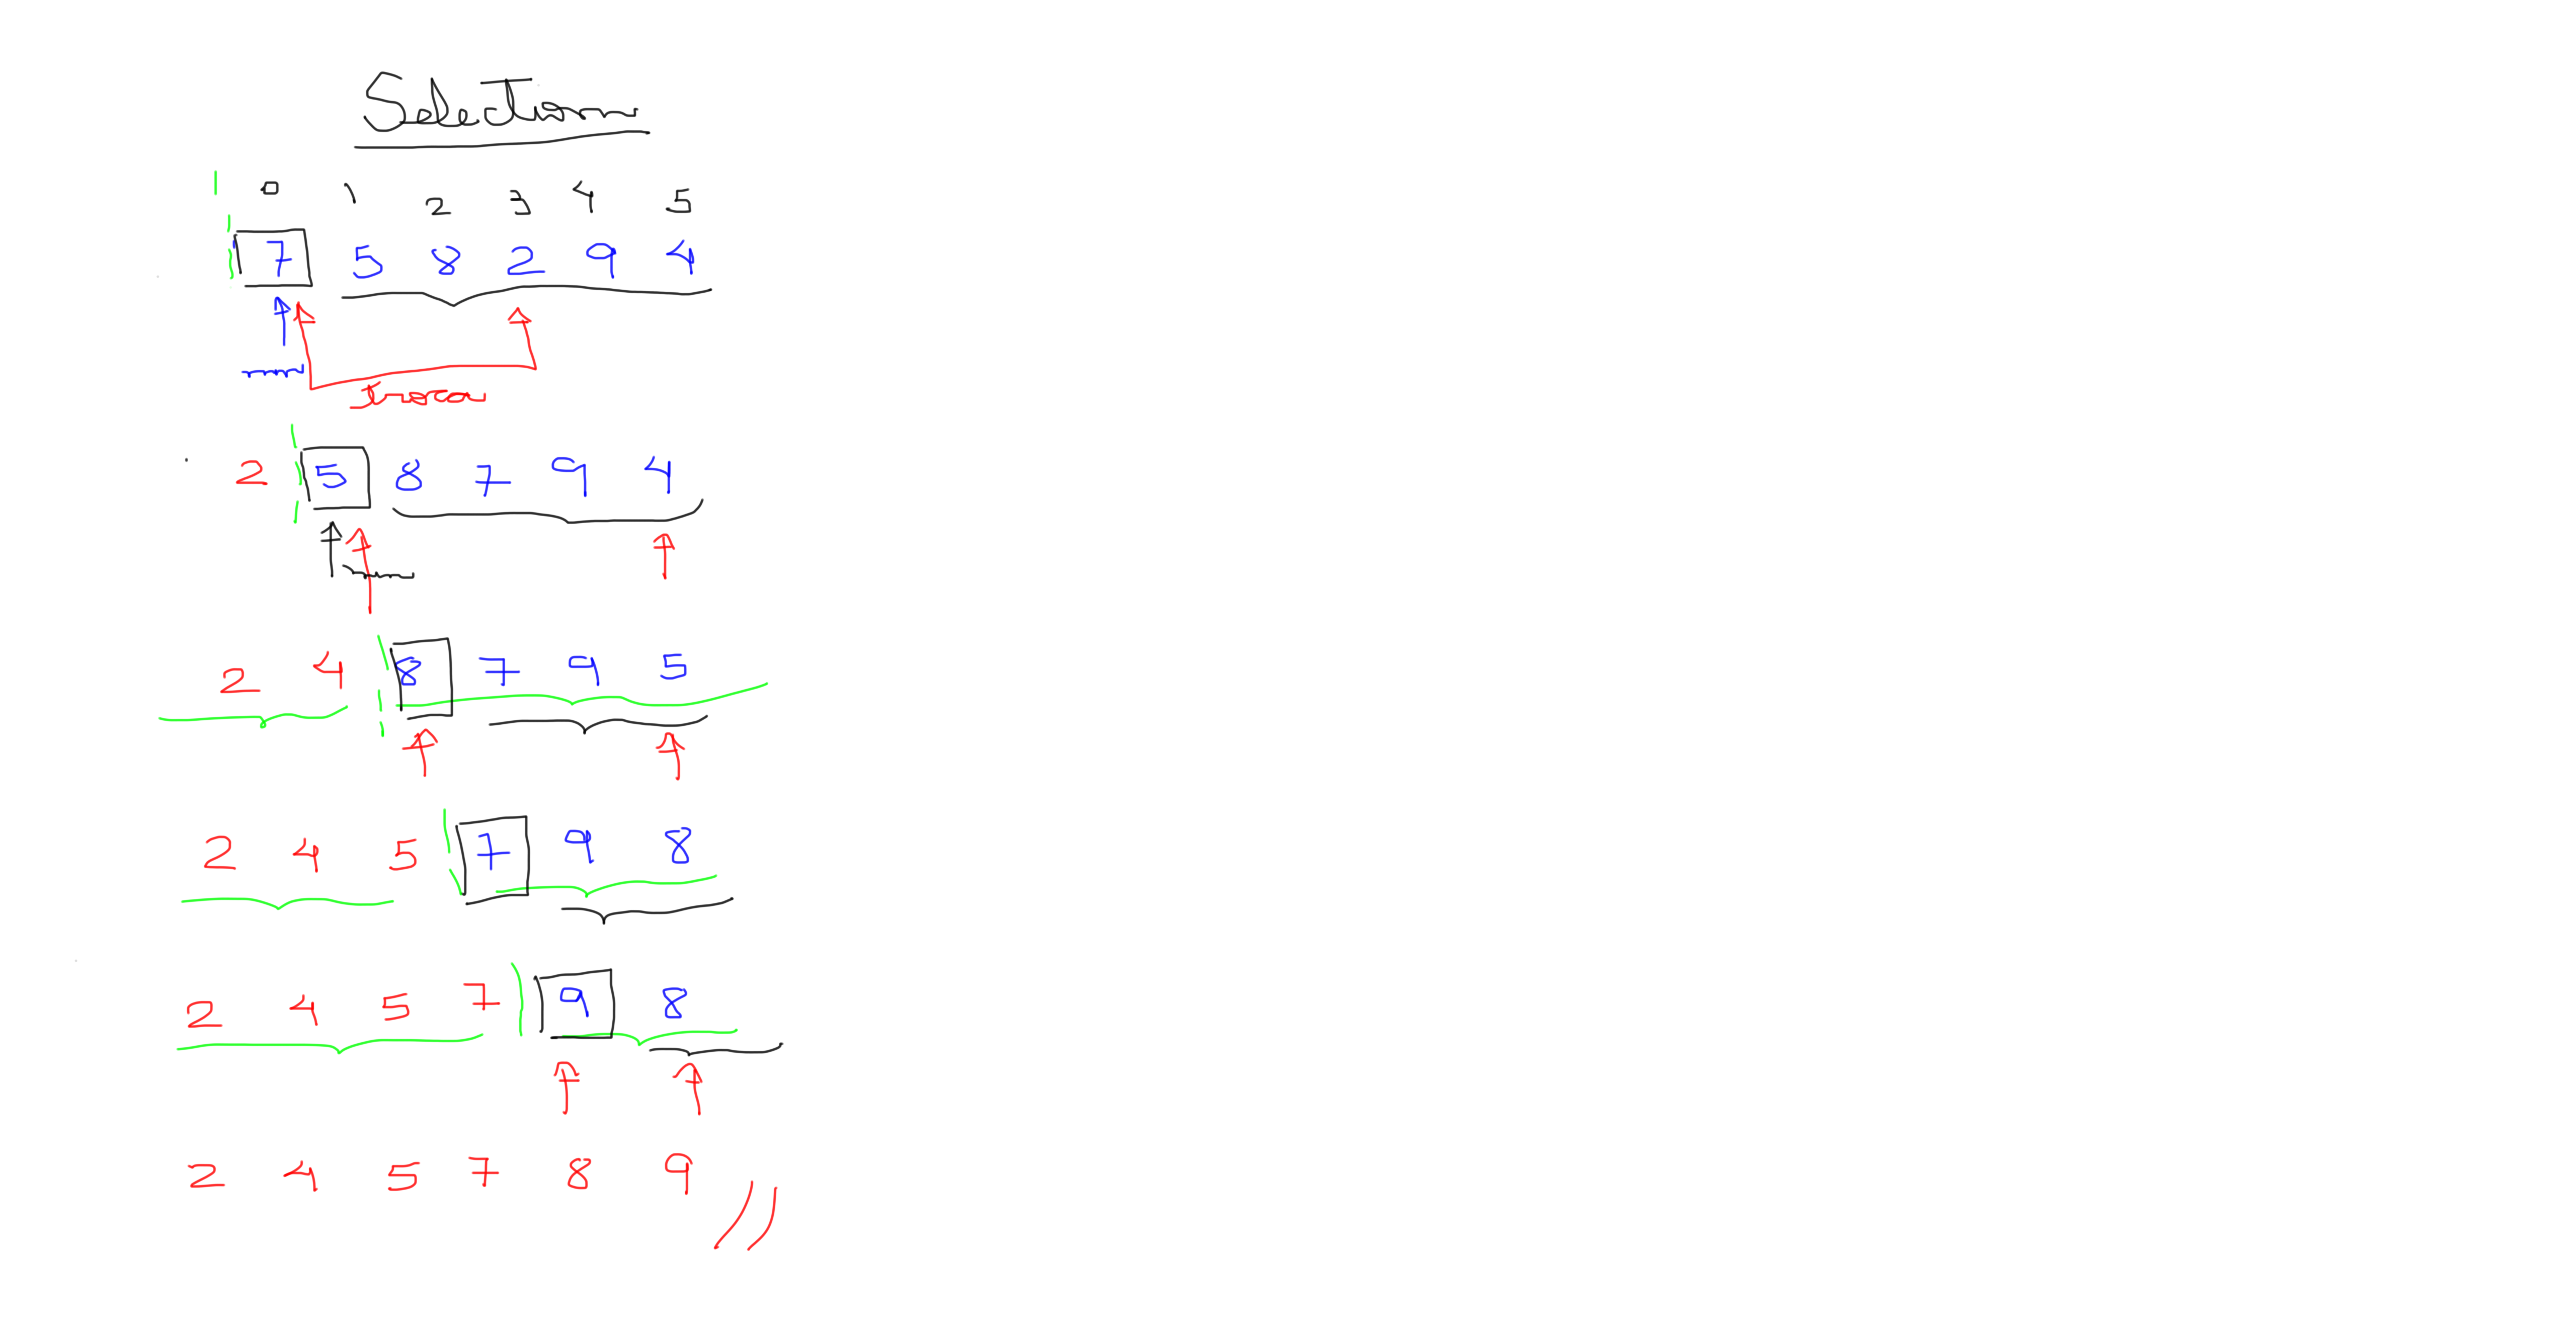 Selection
0 1 2 3 4 5
7 5 8 2 9 4
min
Troca
2 5 8 7 9 4
min
2 4 8 7 9 5
2 4 5 7 9 8
2 4 5 7 9 8
2 4 5 7 8 9